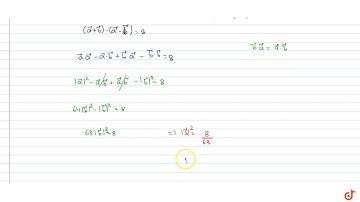 (a⃗+b⃗)·(a⃗-b⃗)=8
b⃗·a⃗ = a⃗·b⃗
a⃗·a⃗ - a⃗·b⃗ + b⃗·a⃗ - b⃗·b⃗ = 8
|a⃗|² - a⃗·b⃗ + a⃗·b⃗ - |b⃗|² = 8
64|b⃗|² - |b⃗|² = 8
63|b⃗|² = 8 ⇒ |b⃗|² = 8/63